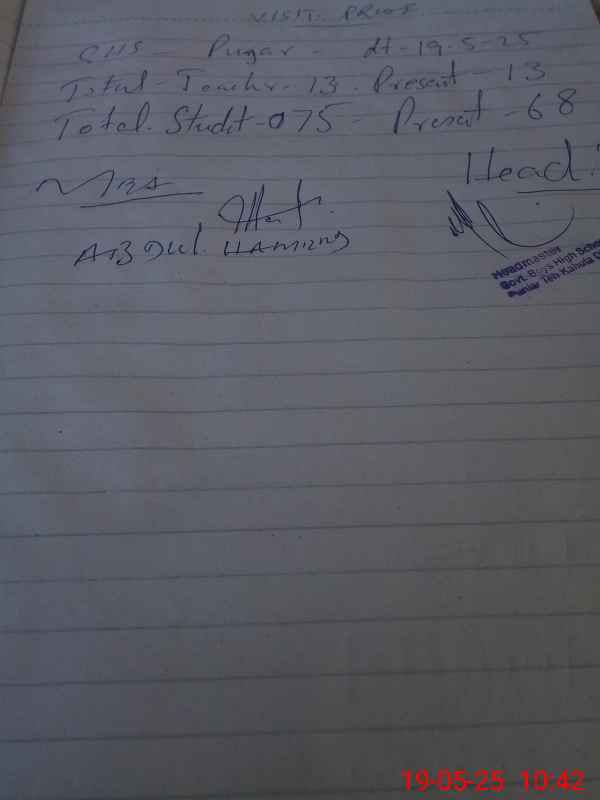 VISIT PROF
GHS - Pugar - dt-19-5-25
Total-Teachr-13. Present-13
Total. Studt-075- Present-68
Head:
ABDUL. HAMEED
Headmaster
Govt. Boys High School
Teh Kahuta
19-05-25 10:42